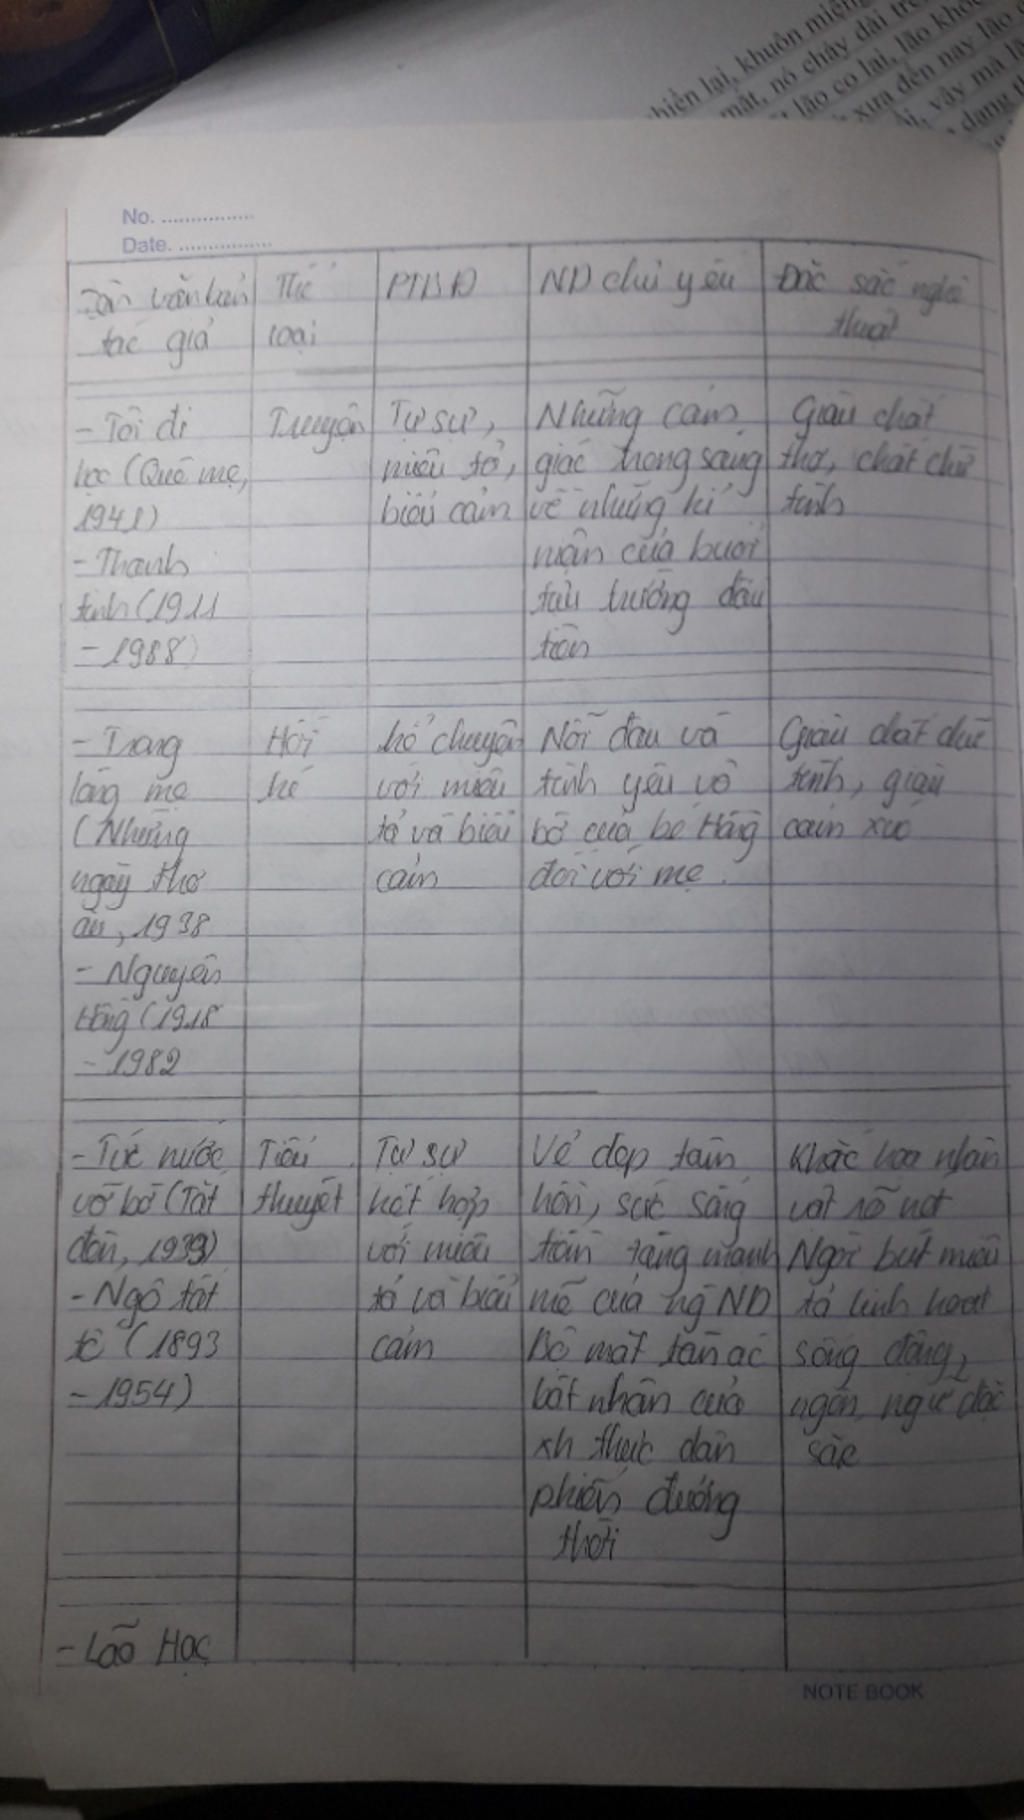 hiền lại, khuôn miệng
mắt, nó chảy dài trên
lão co lại, lão khóc
xưa đến nay lão
vậy mà
đang
No. ................
Date. ................
Tên văn bản
tác giả
Thể
loại
PTBĐ
ND chủ yếu
Đặc sắc nghệ
thuật
- Tôi đi
học (Quê mẹ,
1941)
- Thanh
tịnh (1911
- 1988)
Truyện
Tự sự,
miêu tả,
biểu cảm
Những cảm
giác trong sáng
về những kỉ
niệm của buổi
tựu trường đầu
tiên
Giàu chất
thơ, chất chữ
tình
- Trong
lòng mẹ
(Những
ngày thơ
ấu, 1938
- Nguyên
Hồng (1918
- 1982
Hồi
kí
kể chuyện
với miêu
tả và biểu
cảm
Nỗi đau và
tình yêu vô
bờ của bé Hồng
đối với mẹ.
Giàu chất chữ
tình, giàu
cảm xúc
- Tức nước
vỡ bờ (Tắt
đèn, 1939)
- Ngô tất
tố (1893
- 1954)
Tiểu
thuyết
Tự sự
kết hợp
với miêu
tả và biểu
cảm
Vẻ đẹp tâm
hồn, sức sống
tiềm tàng mạnh
mẽ của ng ND
Bộ mặt tàn ác
bất nhân của
xh thực dân
phiến đương
thời
Khắc họa nhân
vật rõ nét
Ngòi bút miêu
tả linh hoạt
sống động,
ngôn ngữ đặc
sắc
- Lão Hạc
NOTE BOOK